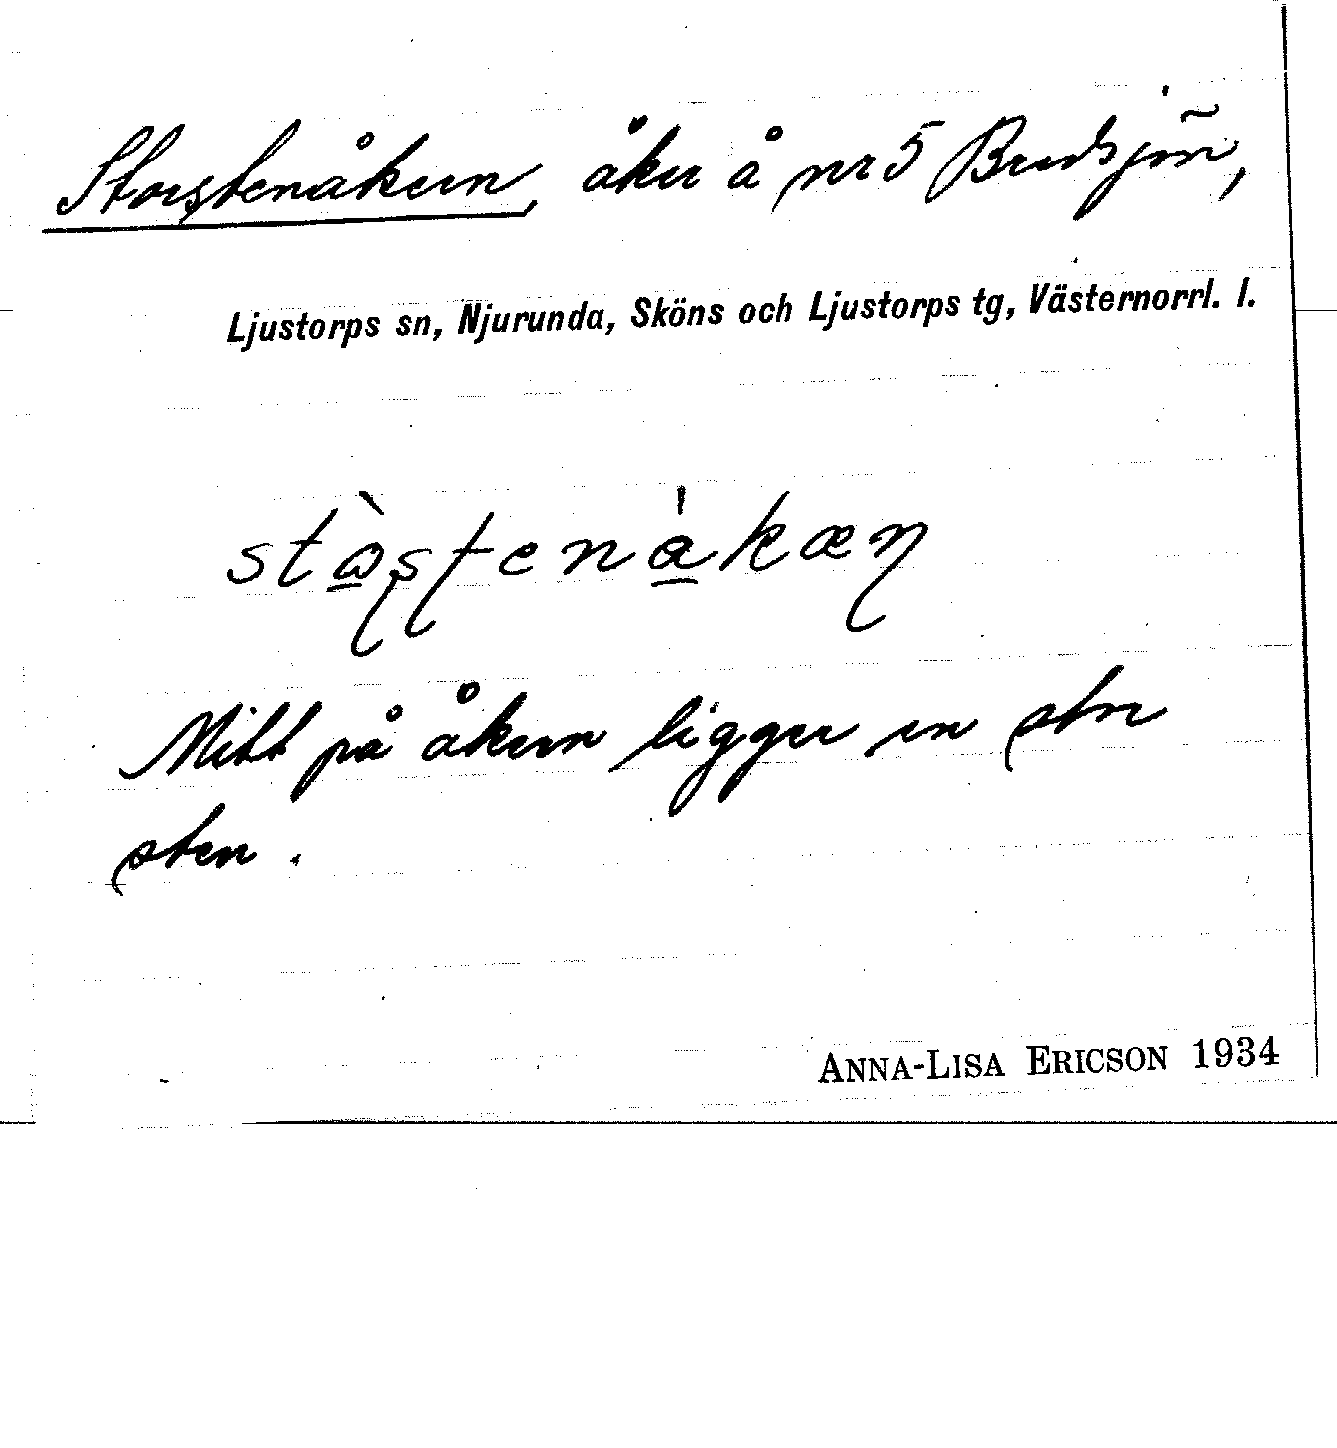 Storstenåkern, åker å nr 5 Bredsjön,
Ljustorps sn, Njurunda, Sköns och Ljustorps tg, Västernorrl. l.
Mitt på åkern ligger en stor
sten.
ANNA-LISA ERICSON 1934